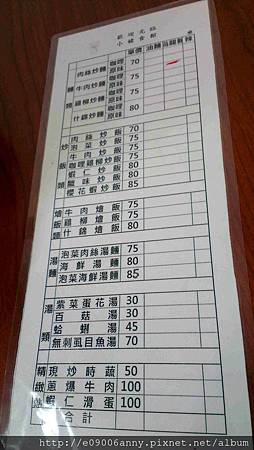 歡迎光臨
小緒食館
單價 油麵 烏龍麵 辣
麵類
肉絲炒麵 咖哩 原味 70
牛肉炒麵 咖哩 原味 75
雞柳炒麵 咖哩 原味 75
什錦炒麵 咖哩 原味 80
炒飯類
肉絲炒飯 70
泡菜炒飯 75
牛肉炒飯 75
咖哩雞柳炒飯 75
蝦仁炒飯 80
臘味炒飯 80
櫻花蝦炒飯 85
燴飯類
牛肉燴飯 75
雞柳燴飯 75
什錦燴飯 80
湯麵
泡菜肉絲湯麵 75
海鮮湯麵 80
泡菜海鮮湯麵 85
湯類
紫菜蛋花湯 30
百菇湯 30
蛤蜊湯 45
無刺虱目魚湯 70
精緻
現炒時蔬 50
蔥爆牛肉 100
蝦仁滑蛋 100
合計
http://e09006anny.pixnet.net/album